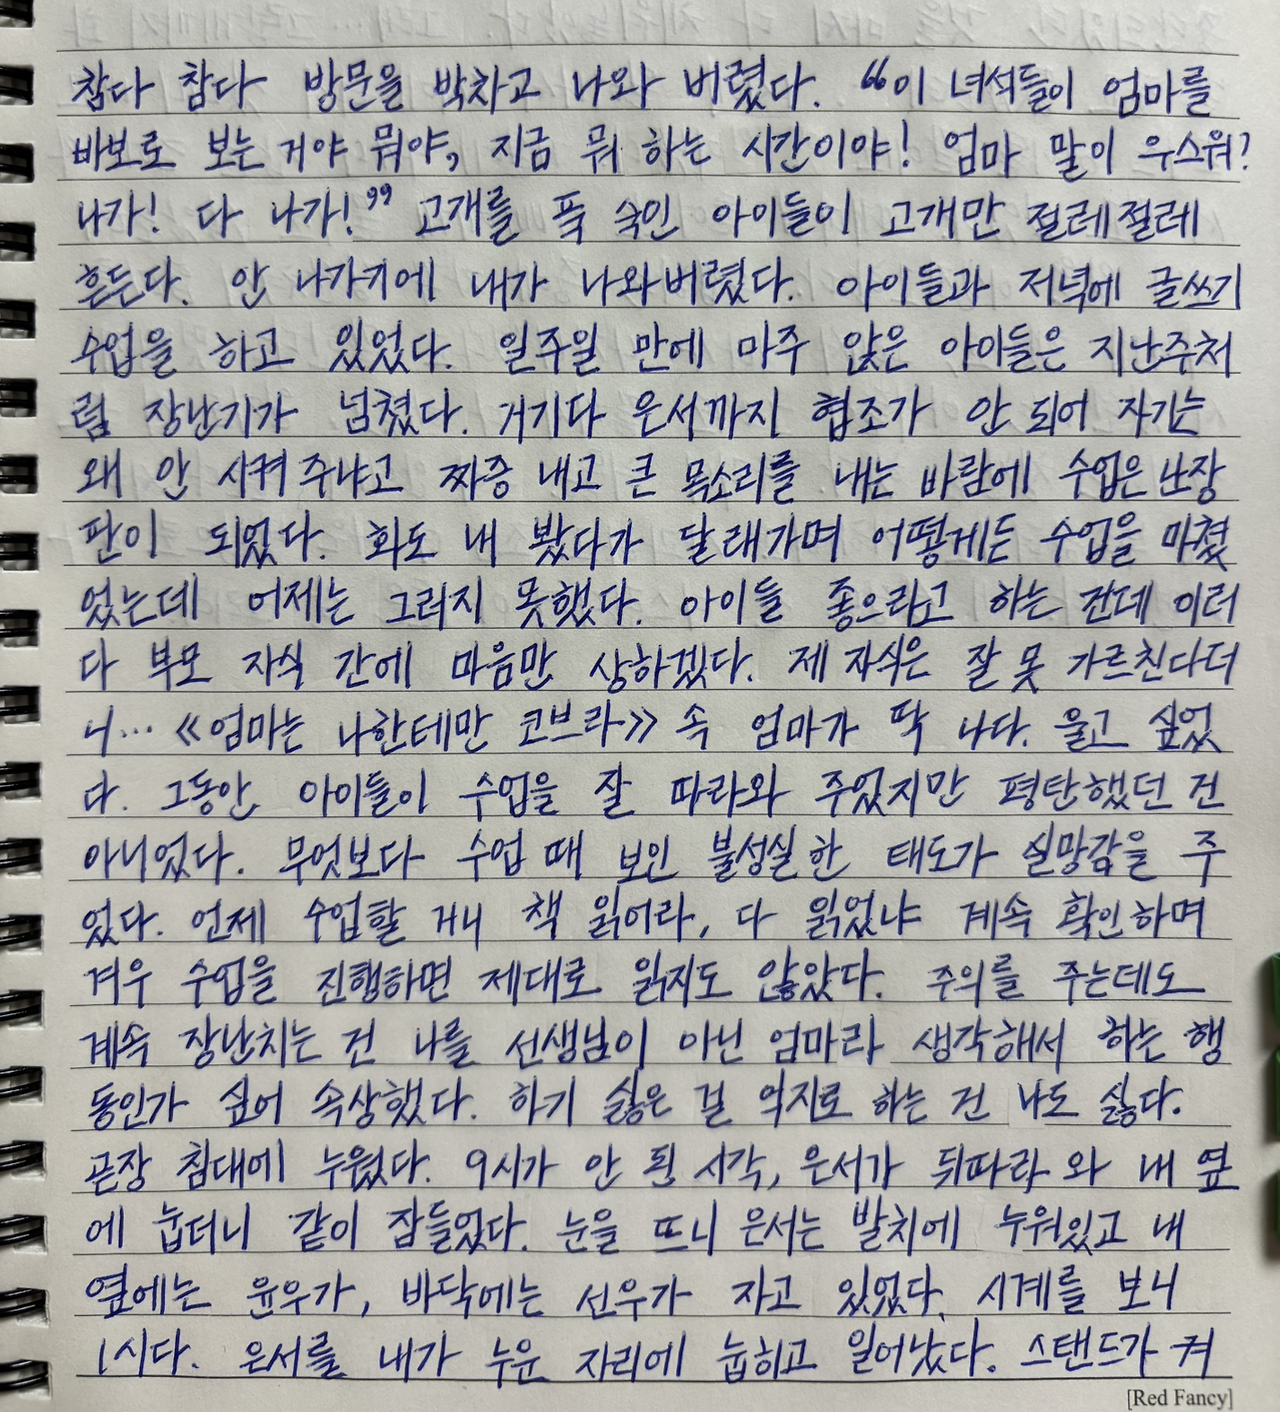 참다 참다 방문을 박차고 나와 버렸다. “이 녀석들이 엄마를
바보로 보는 거야 뭐야, 지금 뭐 하는 시간이야! 엄마 말이 우스워?
나가! 다 나가!” 고개를 푹 숙인 아이들이 고개만 절레절레
흔든다. 안 나가기에 내가 나와버렸다. 아이들과 저녁에 글쓰기
수업을 하고 있었다. 일주일 만에 마주 앉은 아이들은 지난주처
럼 장난기가 넘쳤다. 거기다 은서까지 협조가 안 되어 자기는
왜 안 시켜 주냐고 짜증 내고 큰 목소리를 내는 바람에 수업은 난장
판이 되었다. 화도 내 봤다가 달래가며 어떻게든 수업을 마쳤
었는데 어제는 그러지 못했다. 아이들 좋으라고 하는 건데 이러
다 부모 자식 간에 마음만 상하겠다. 제 자식은 잘 못 가르친다더
니… 《엄마는 나한테만 코브라》 속 엄마가 딱 나다. 울고 싶었
다. 그동안 아이들이 수업을 잘 따라와 주었지만 평탄했던 건
아니었다. 무엇보다 수업 때 보인 불성실한 태도가 실망감을 주
었다. 언제 수업할 거니 책 읽어라, 다 읽었냐 계속 확인하며
겨우 수업을 진행하면 제대로 읽지도 않았다. 주의를 주는데도
계속 장난치는 건 나를 선생님이 아닌 엄마라 생각해서 하는 행
동인가 싶어 속상했다. 하기 싫은 걸 억지로 하는 건 나도 싫다.
곧장 침대에 누웠다. 9시가 안 된 시각, 은서가 뒤따라 와 내 옆
에 눕더니 같이 잠들었다. 눈을 뜨니 은서는 발치에 누워있고 내
옆에는 윤우가, 바닥에는 선우가 자고 있었다. 시계를 보니
1시다. 은서를 내가 누운 자리에 눕히고 일어났다. 스탠드가 켜
[Red Fancy]